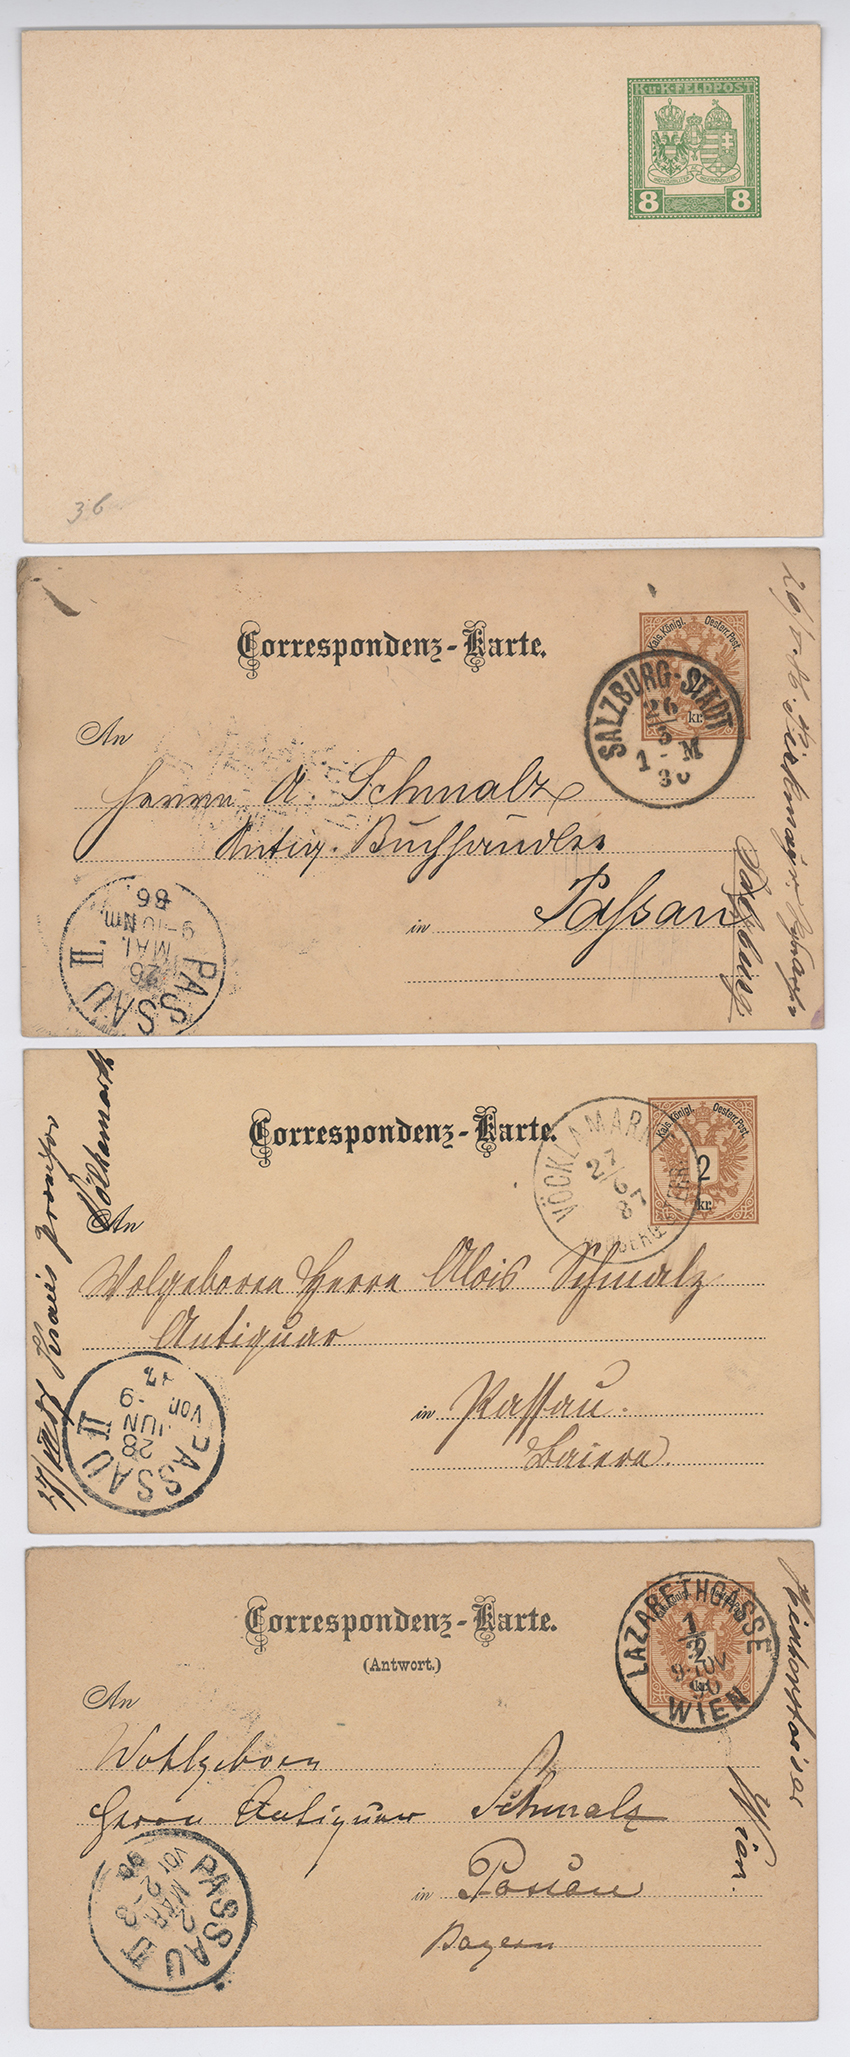 K·u·K·FELDPOST
8 8
36
Correspondenz-Karte.
Kais. Königl. Oesterr. Post.
2 kr.
SALZBURG-STADT
26/5
1-M
An
Herrn A. Schmalz
Antiq. Buchhändler
in Passau
Salzburg
PASSAU II.
26
MAI.
9-10 Nm.
86.
Correspondenz-Karte.
Kais. Königl. Oesterr. Post.
2
kr.
VÖCKLAMARKT
27/6
87
An
Wolgeboren Herrn Alois Schmalz
Antiquar
in Passau.
Baiern.
PASSAU II
28
JUN
Correspondenz-Karte.
(Antwort.)
LAZARETHGASSE
1/3
90
WIEN
An
Wohlgeborn
Herrn Antiquar Schmalz
in Passau
Bayern
Wien.
PASSAU II
2
MÄR
90